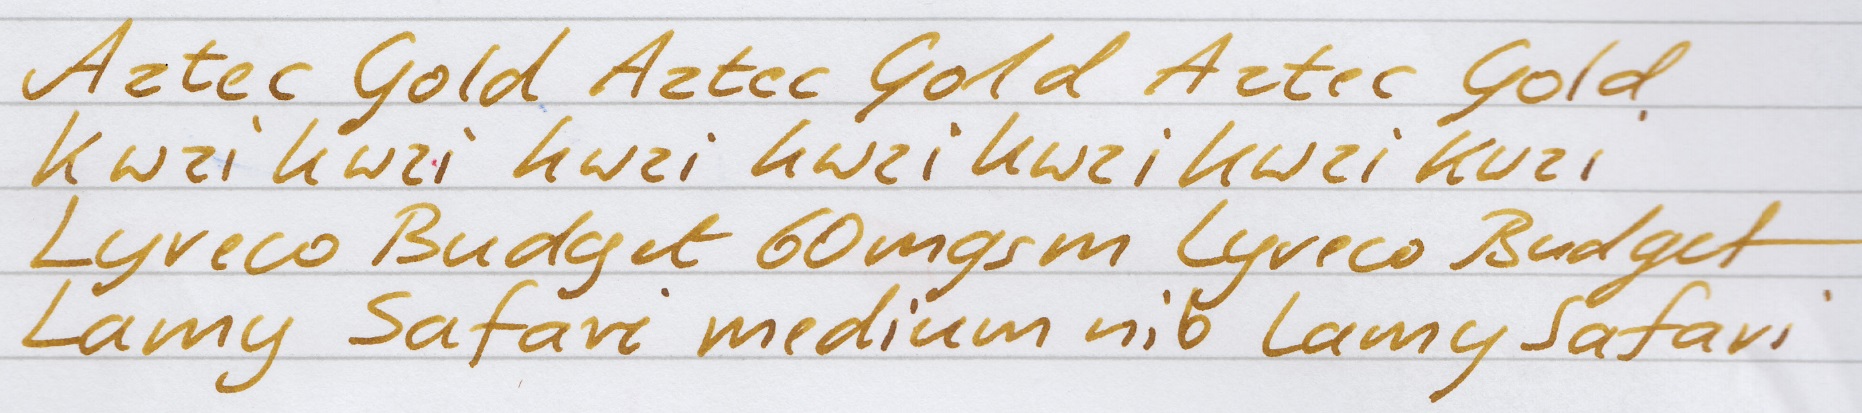 Aztec Gold Aztec Gold Aztec Gold
kwzi kwzi kwzi kwzi kwzi kwzi kwzi
Lyreco Budget 60mgsm Lyreco Budget
Lamy Safari medium nib Lamy Safari